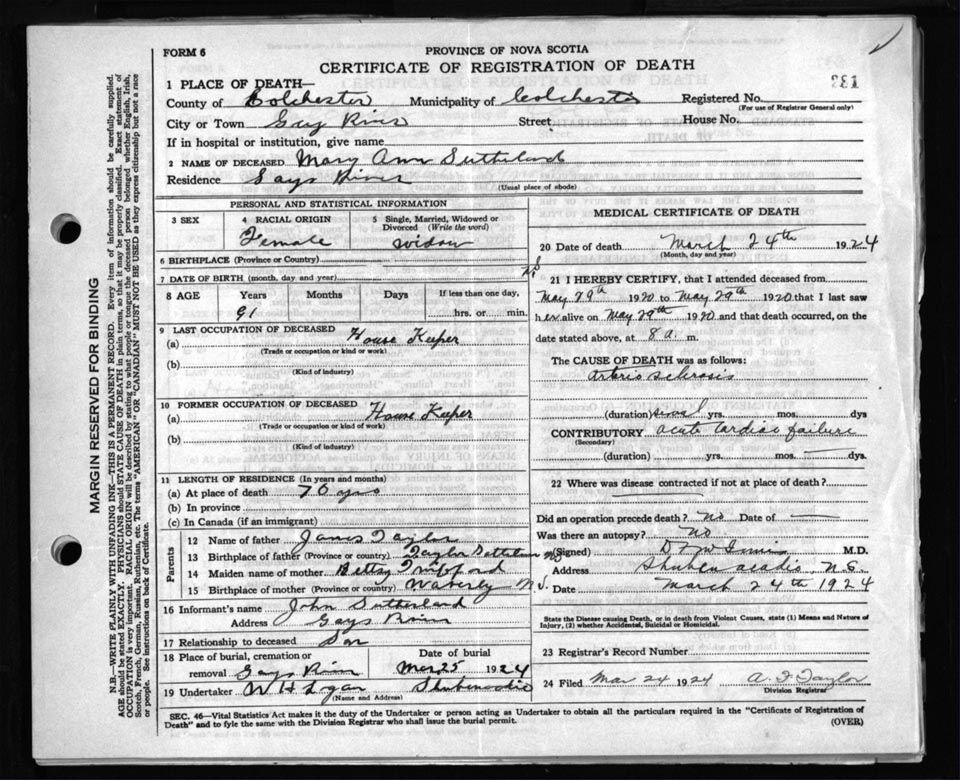 FORM 6
PROVINCE OF NOVA SCOTIA
CERTIFICATE OF REGISTRATION OF DEATH
331
1 PLACE OF DEATH—
County of Colchester Municipality of Colchester Registered No.
(For use of Registrar General only)
City or Town Gay River Street House No.
If in hospital or institution, give name
2 NAME OF DECEASED Mary Ann Sutherland
Residence Gays River
(Usual place of abode)
PERSONAL AND STATISTICAL INFORMATION
3 SEX 4 RACIAL ORIGIN 5 Single, Married, Widowed or Divorced (Write the word)
Female widow
6 BIRTHPLACE (Province or Country) N S
7 DATE OF BIRTH (month, day and year)
8 AGE Years Months Days If less than one day,
91 hrs. or min.
9 LAST OCCUPATION OF DECEASED
(a) House Keeper
(Trade or occupation or kind or work)
(b)
(Kind of industry)
10 FORMER OCCUPATION OF DECEASED
(a) House Keeper
(Trade or occupation or kind of work)
(b)
(Kind of industry)
11 LENGTH OF RESIDENCE (In years and months)
(a) At place of death 70 yrs
(b) In province
(c) In Canada (if an immigrant)
Parents
12 Name of father James Taylor
13 Birthplace of father (Province or country) Taylor
14 Maiden name of mother Betsy
15 Birthplace of mother (Province or country) Waverly N S.
16 Informant's name John Sutherland
Address Gays River
17 Relationship to deceased Son
18 Place of burial, cremation or removal Gays River Date of burial Mar 25 1924
19 Undertaker W H Shubenacadie
(Name and Address)
MEDICAL CERTIFICATE OF DEATH
20 Date of death March 24th 1924
(Month, day and year)
21 I HEREBY CERTIFY, that I attended deceased from
May 29th 1920 to May 29th 1920 that I last saw
her alive on May 29th 1920 and that death occurred, on the
date stated above, at 8 a. m.
The CAUSE OF DEATH was as follows:
Arterio sclerosis
(duration) several yrs. mos. dys
CONTRIBUTORY acute cardiac failure
(Secondary)
(duration) yrs. mos. dys.
22 Where was disease contracted if not at place of death?
Did an operation precede death? No Date of
Was there an autopsy? No
(Signed) M.D.
Address Shubenacadie, N.S.
Date March 24th 1924
State the Disease causing Death, or in death from Violent Causes, state (1) Means and Nature of
Injury, (2) whether Accidental, Suicidal or Homicidal.
23 Registrar's Record Number
24 Filed Mar 24 1924 A. F Taylor
Division Registrar
SEC. 46—Vital Statistics Act makes it the duty of the Undertaker or person acting as Undertaker to obtain all the particulars required in the "Certificate of Registration of
Death" and to fyle the same with the Division Registrar who shall issue the burial permit.
(OVER)
MARGIN RESERVED FOR BINDING
N.B.—WRITE PLAINLY WITH UNFADING INK—THIS IS A PERMANENT RECORD. Every item of information should be carefully supplied.
AGE should be stated EXACTLY. PHYSICIANS should STATE CAUSE OF DEATH in plain terms, so that it may be properly classified. Exact statement of
OCCUPATION is very important. RACIAL ORIGIN will be described by stating to what people or tongue the deceased person belonged whether English, Irish,
Scotch, French, German, Russian, Ruthenian, etc. The terms "AMERICAN" OR "CANADIAN" MUST NOT BE USED as they express citizenship but not a race
or people. See instructions on back of Certificate.